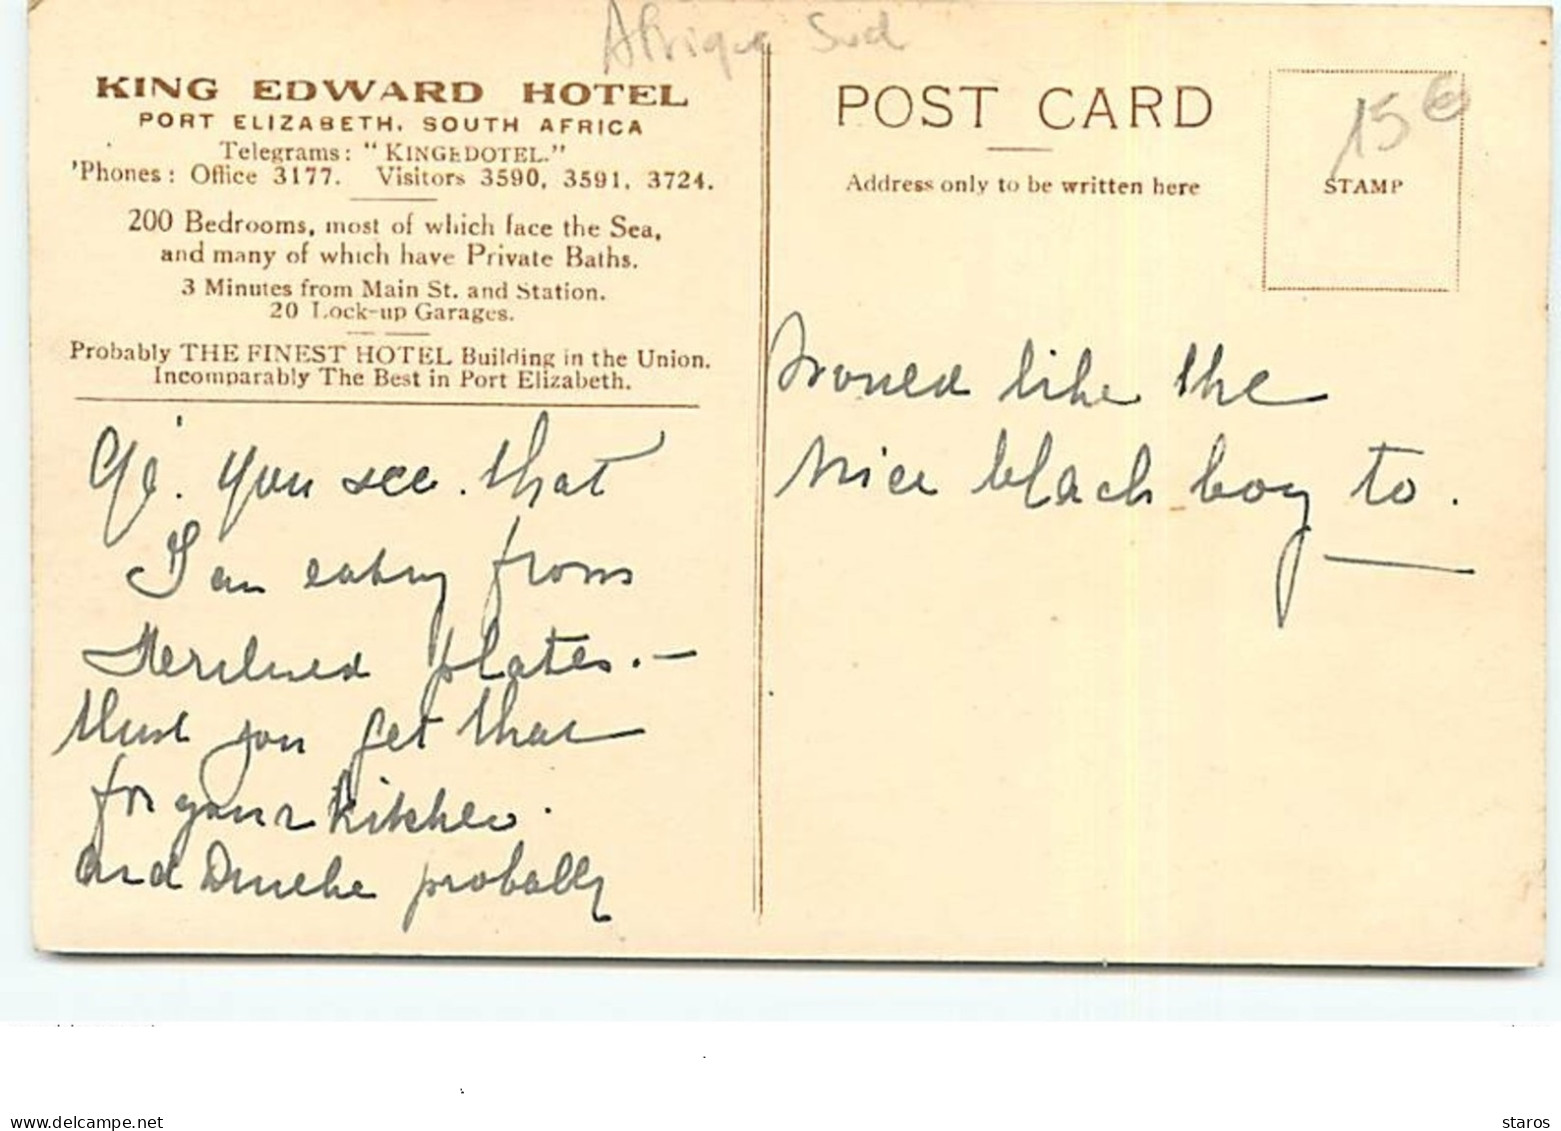 Afrique Sud
KING EDWARD HOTEL
PORT ELIZABETH, SOUTH AFRICA
Telegrams: "KINGEDOTEL."
'Phones: Office 3177. Visitors 3590, 3591, 3724.
200 Bedrooms, most of which face the Sea,
and many of which have Private Baths.
3 Minutes from Main St. and Station.
20 Lock-up Garages.
Probably THE FINEST HOTEL Building in the Union.
Incomparably The Best in Port Elizabeth.
you see. that
I am eating from
plates. —
Must you get that
for your kitchen.
and probably
POST CARD
Address only to be written here
15 €
STAMP
would like the
nice black boy to.
delcampe.net
staros